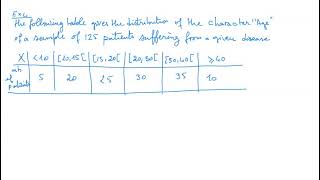 Exe.
The following table gives the distribution of the character "Age"
of a sample of 125 patients suffering from a given disease
X <10 [10,15[ [15,20[ [20,30[ [30,40[ ≥40
nb of patients 5 20 25 30 35 10